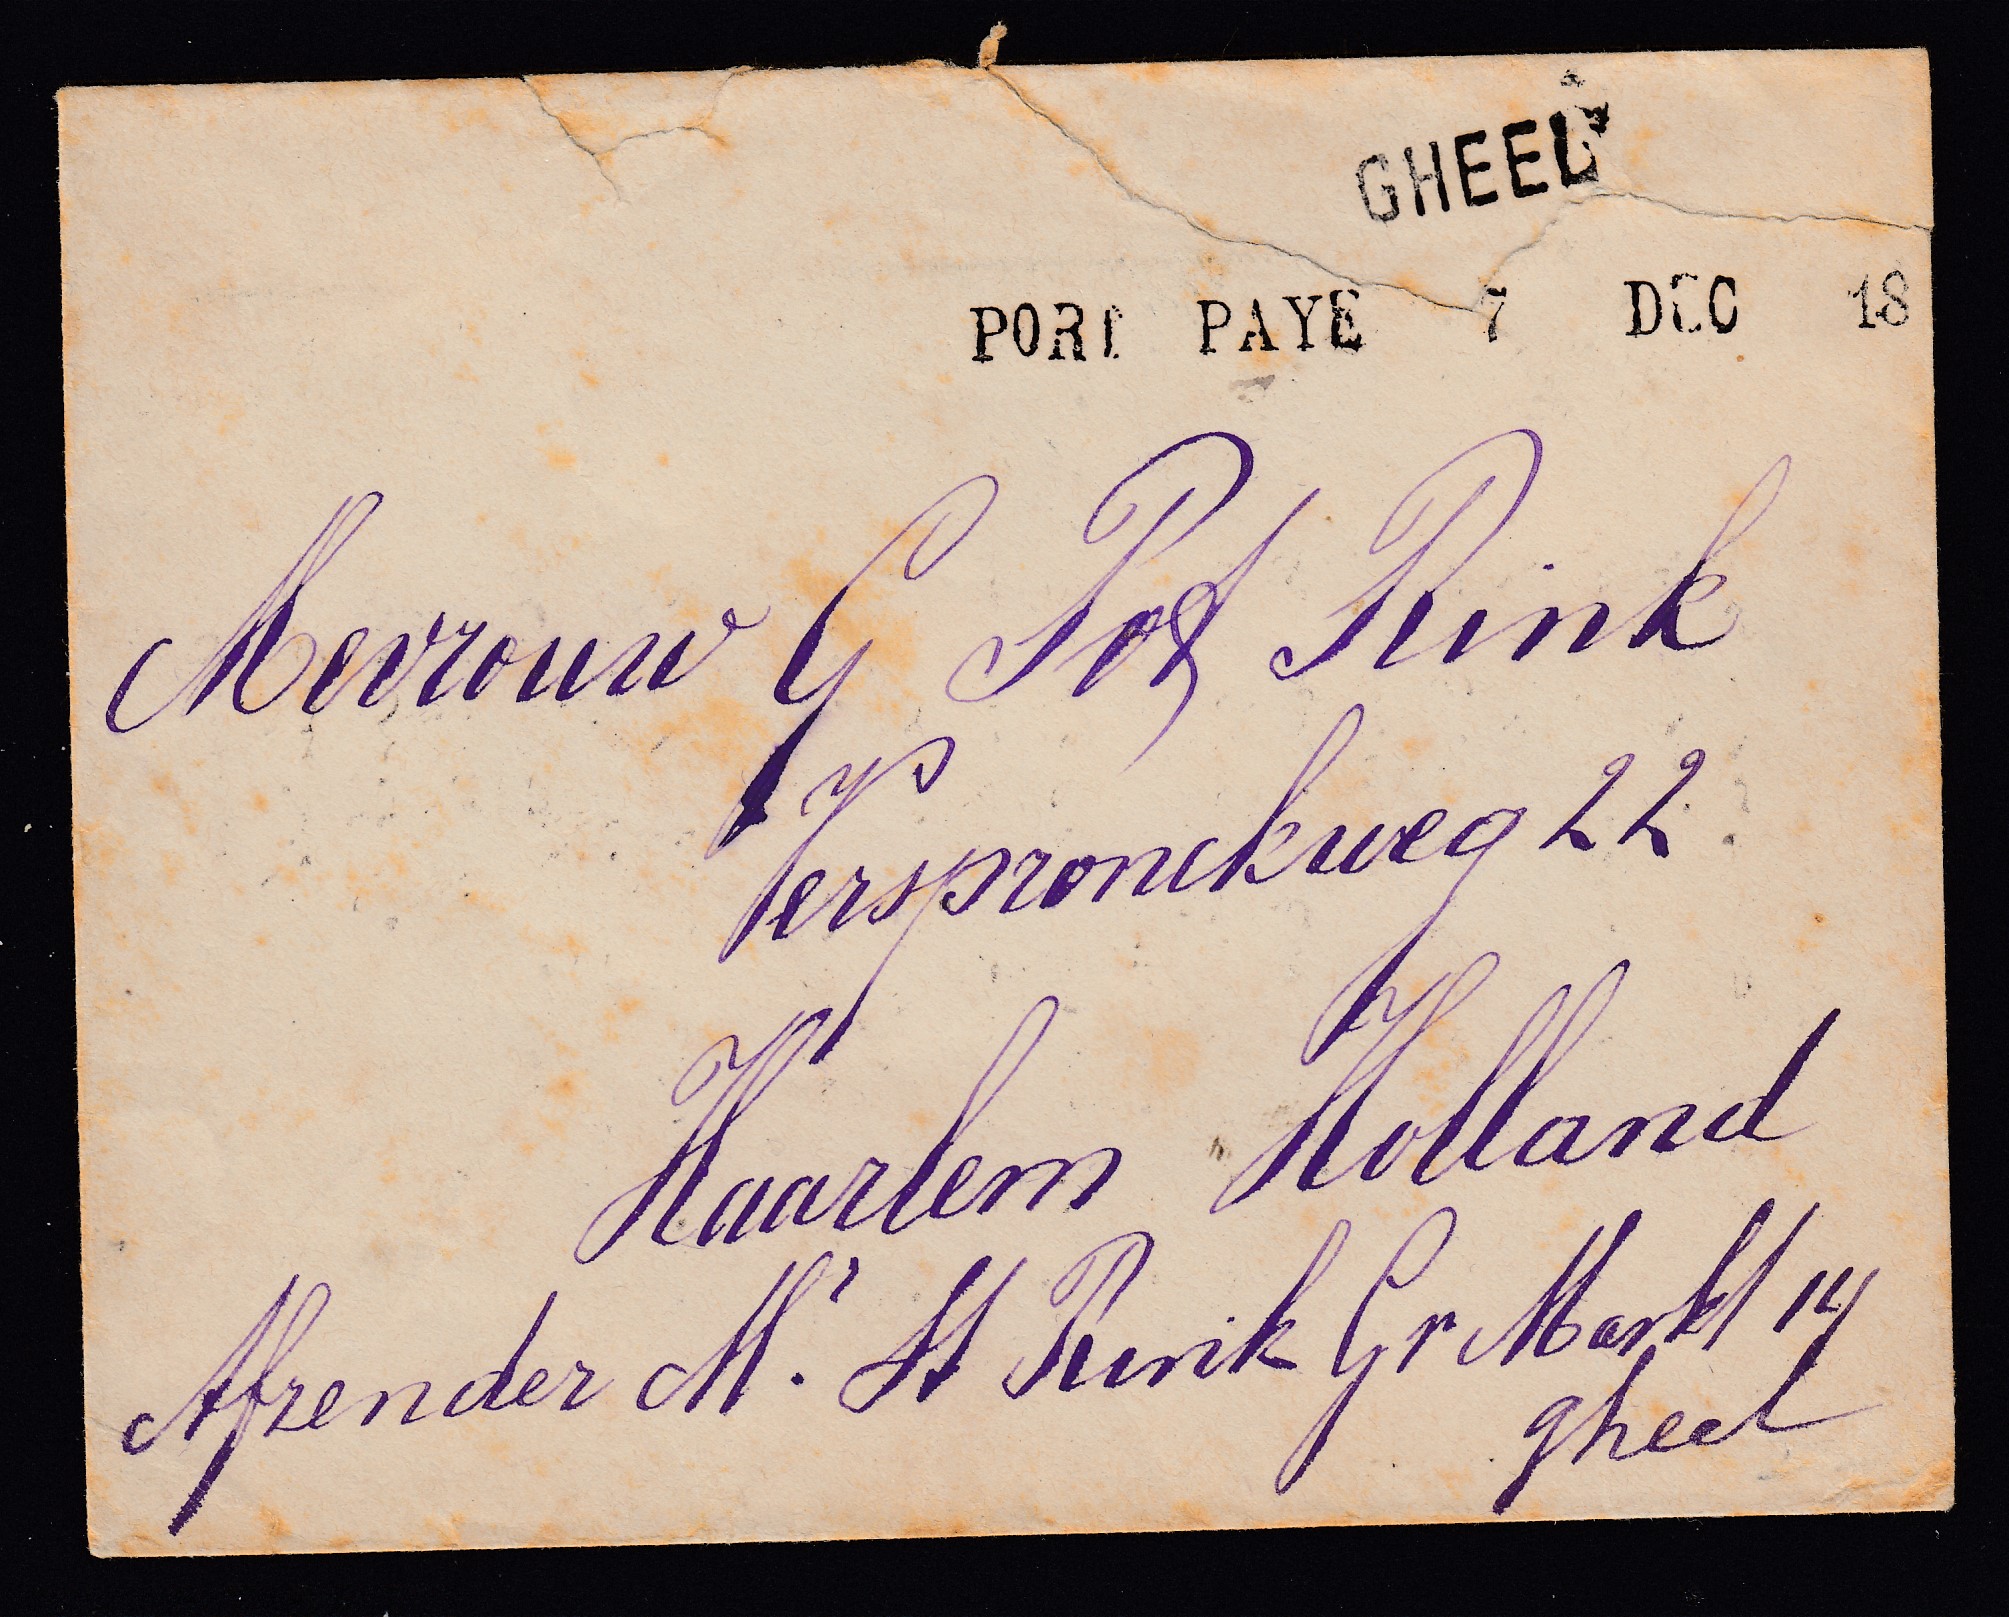 GHEEL
PORT PAYE 7 DEC 18
Mevrouw G Pos Rink
Verspronckweg 22
Haarlem Holland
Afzender Mr. H Rink Gr Markt 14
gheel